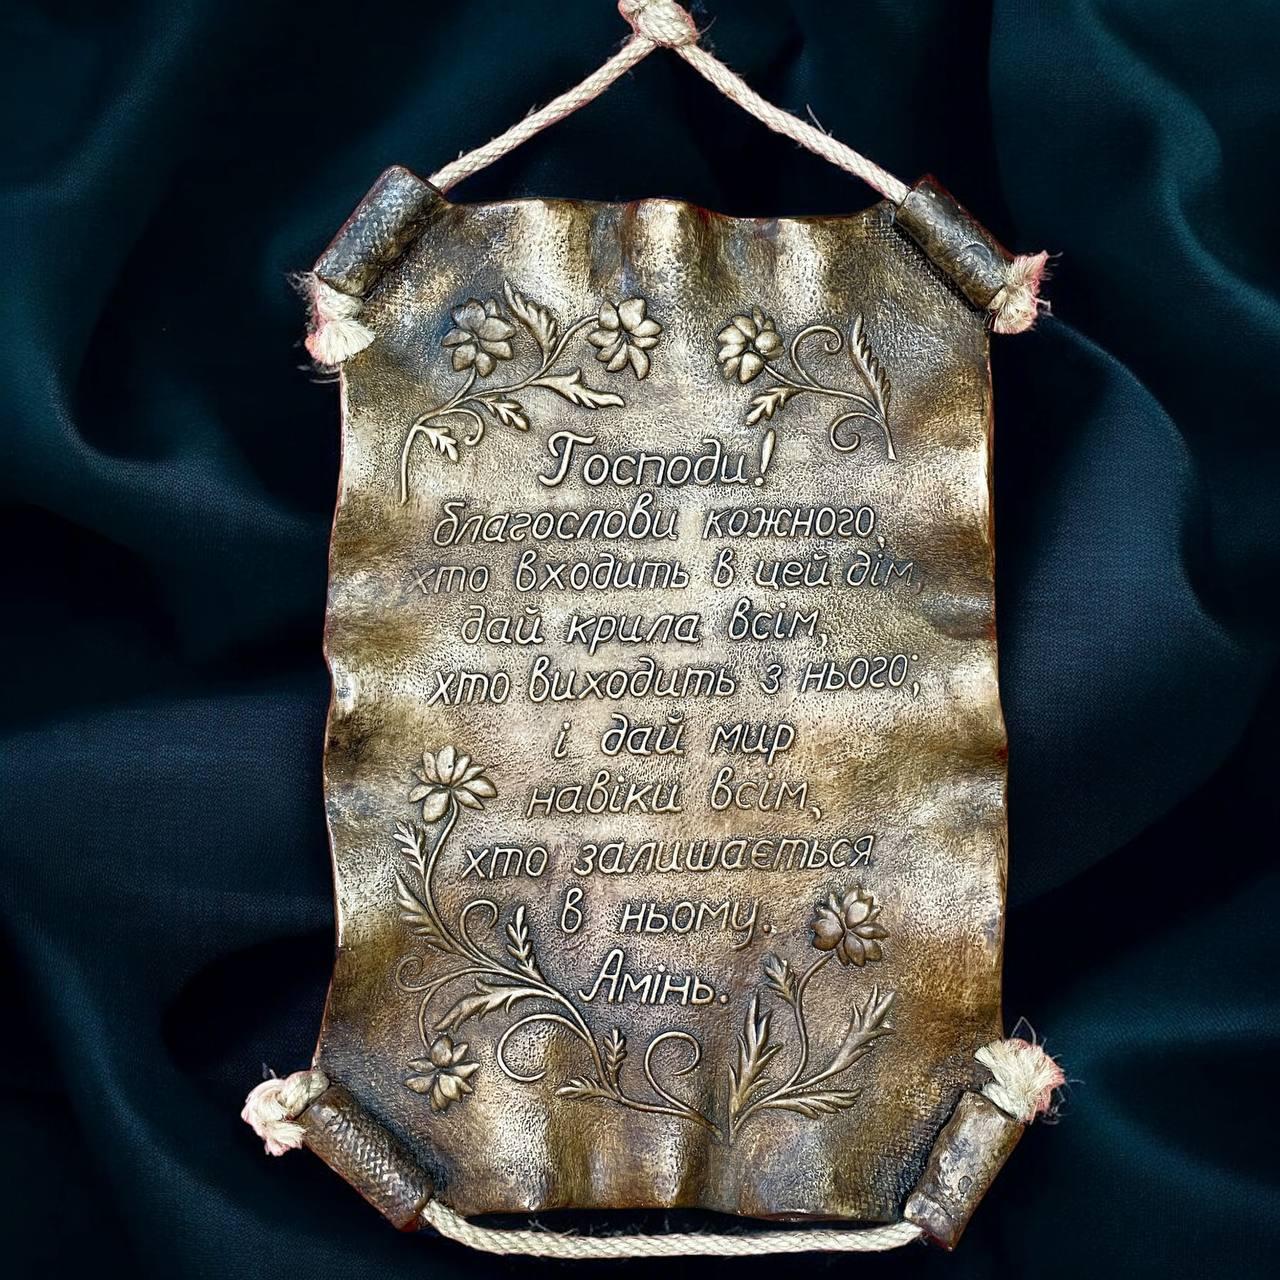 Господи!
благослови кожного,
хто входить в цей дім,
дай крила всім,
хто виходить з нього;
і дай мир
навіки всім,
хто залишається
в ньому.
Амінь.